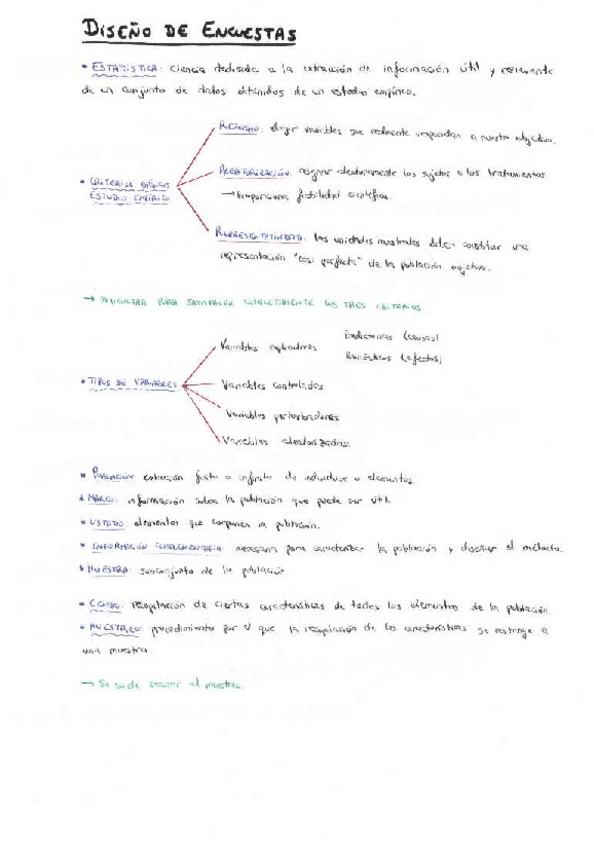 DISEÑO DE ENCUESTAS
• ESTADÍSTICA: ciencia dedicada a la extracción de información útil y relevante
de un conjunto de datos obtenidos de un estudio empírico.
REALISMO: elegir variables que realmente respondan a nuestro objetivo.
ALEATORIZACIÓN: asignar aleatoriamente los sujetos a los tratamientos.
→ Proporciona fiabilidad científica.
• CRITERIOS BÁSICOS
ESTUDIO EMPÍRICO
REPRESENTATIVIDAD: las unidades muestrales deben constituir una
representación "casi perfecta" de la población objetivo.
→ DIFICULTAD PARA SATISFACER COMPLETAMENTE LOS TRES CRITERIOS
Variables explicativas
Predictoras (causas)
Pronósticas (efectos)
• TIPOS DE VARIABLES
Variables controladas
Variables perturbadoras
Variables aleatorizadas
• POBLACIÓN: colección finita o infinita de individuos o elementos.
• MARCO: información sobre la población que puede ser útil.
• LISTADO: elementos que componen la población.
• INFORMACIÓN COMPLEMENTARIA: necesaria para caracterizar la población y diseñar el método.
• MUESTRA: subconjunto de la población
• CENSO: recopilación de ciertas características de todos los elementos de la población
• MUESTREO: procedimiento por el que la recopilación de las características se restringe a
una muestra.
→ Se suele recurrir al muestreo.